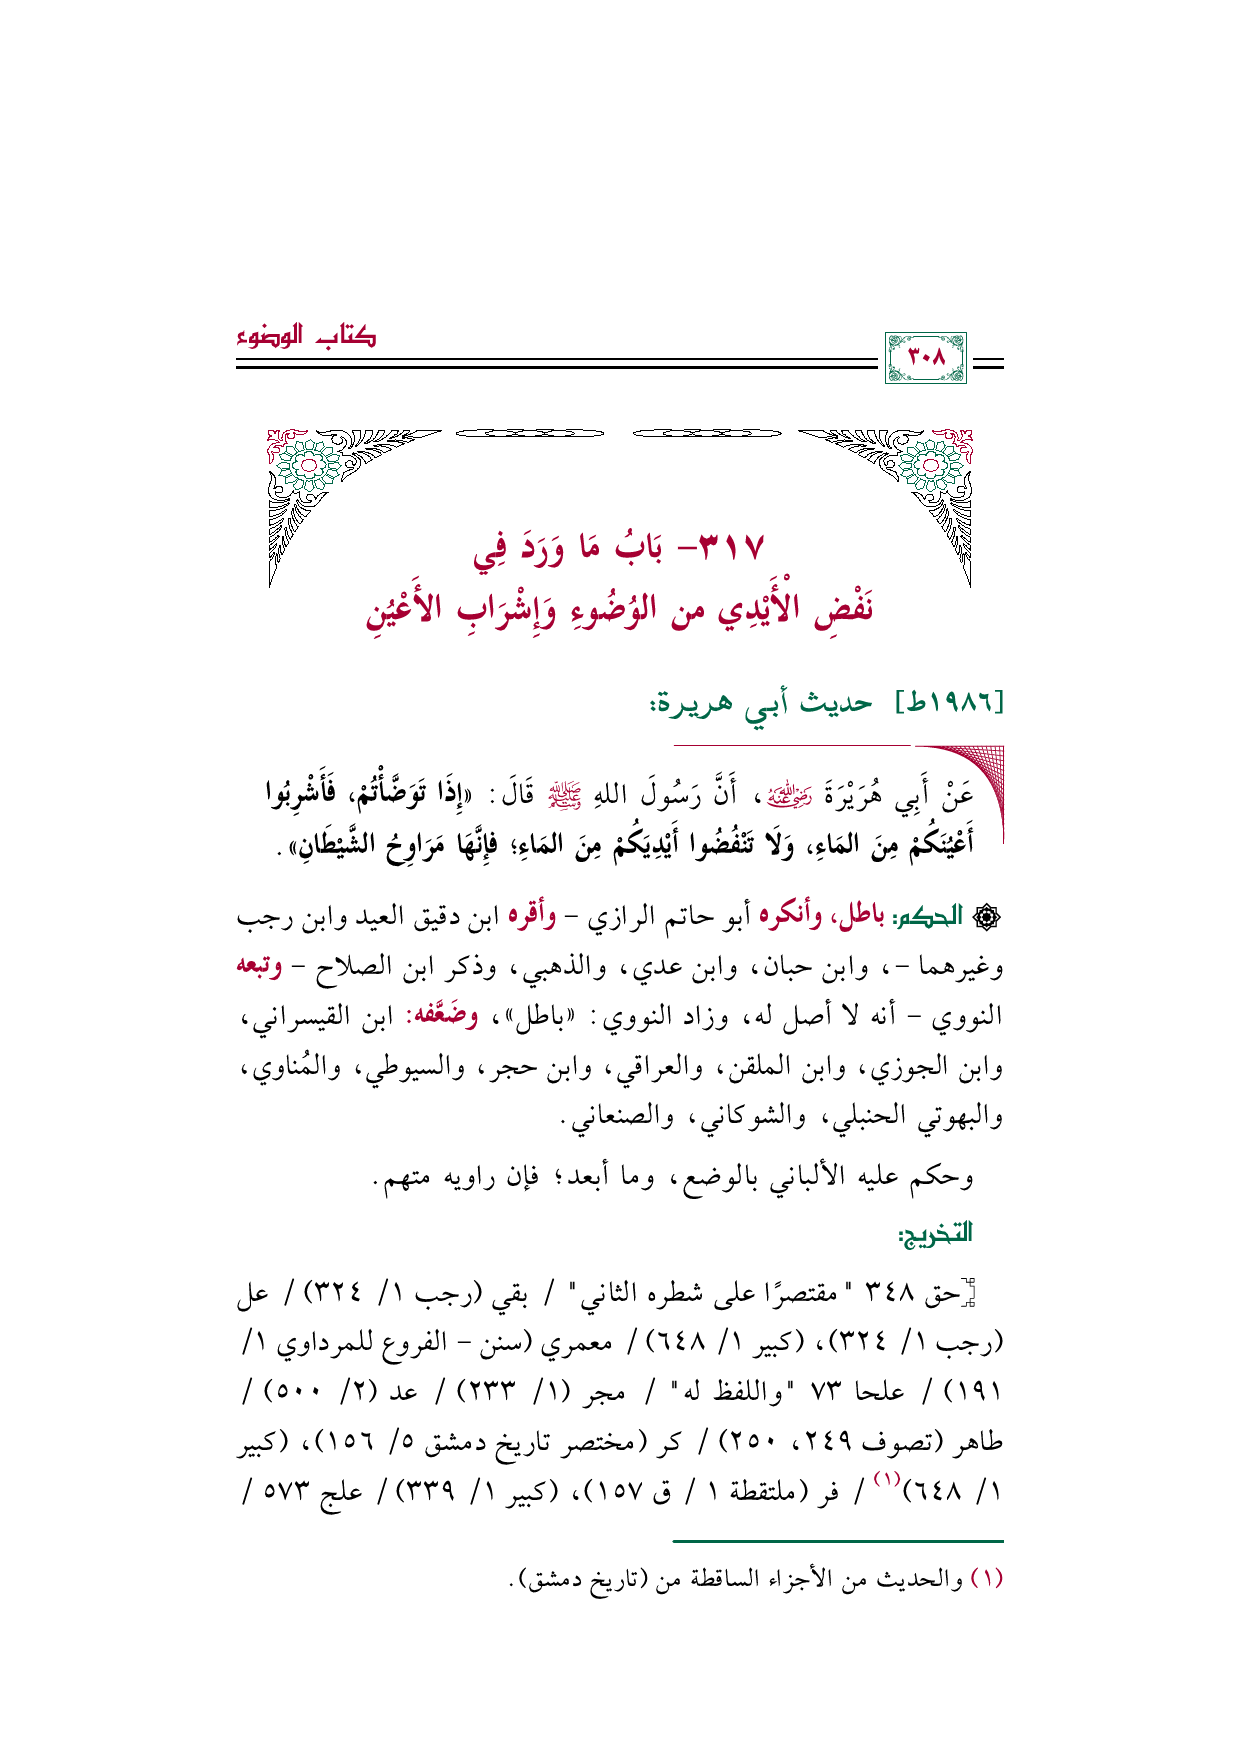 كتاب الوضوء
٣٠٨
٣١٧- بَابُ مَا وَرَدَ فِي
نَفْضِ الْأَيْدِي من الوُضُوءِ وَإِشْرَابِ الأَعْيُنِ
[١٩٨٦ط] حديث أبي هريرة:
عَنْ أَبِي هُرَيْرَةَ رضي الله عنه، أَنَّ رَسُولَ اللهِ ﷺ قَالَ: «إِذَا تَوَضَّأْتُمْ، فَأَشْرِبُوا
أَعْيُنَكُمْ مِنَ المَاءِ، وَلَا تَنْفُضُوا أَيْدِيَكُمْ مِنَ المَاءِ؛ فإِنَّهَا مَرَاوِحُ الشَّيْطَانِ».
الحكم: باطل، وأنكره أبو حاتم الرازي - وأقره ابن دقيق العيد وابن رجب
وغيرهما -، وابن حبان، وابن عدي، والذهبي، وذكر ابن الصلاح - وتبعه
النووي - أنه لا أصل له، وزاد النووي: «باطل»، وضَعَّفه: ابن القيسراني،
وابن الجوزي، وابن الملقن، والعراقي، وابن حجر، والسيوطي، والمُناوي،
والبهوتي الحنبلي، والشوكاني، والصنعاني.
وحكم عليه الألباني بالوضع، وما أبعد؛ فإن راويه متهم.
التخريج:
[حق ٣٤٨ "مقتصرًا على شطره الثاني" / بقي (رجب ١/ ٣٢٤) / عل
(رجب ١/ ٣٢٤)، (كبير ١/ ٦٤٨) / معمري (سنن - الفروع للمرداوي ١/
١٩١) / علحا ٧٣ "واللفظ له" / مجر (١/ ٢٣٣) / عد (٢/ ٥٠٠) /
طاهر (تصوف ٢٤٩، ٢٥٠) / كر (مختصر تاريخ دمشق ٥/ ١٥٦)، (كبير
١/ ٦٤٨)(١) / فر (ملتقطة ١ / ق ١٥٧)، (كبير ١/ ٣٣٩) / علج ٥٧٣ /
(١) والحديث من الأجزاء الساقطة من (تاريخ دمشق).